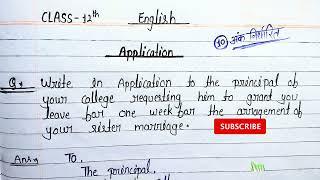 CLASS-12th English
Application
10 अंक निर्धारित
Q. Write in Application to the principal ob
your college requesting him to grant you
leave bor one week bor the arragement ob
your sister marriage.
SUBSCRIBE
Ans. To,
The principal,